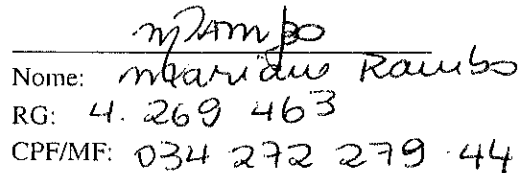 Nome: Mariane Rambo
RG: 4. 269 463
CPF/MF: 034 272 279 - 44